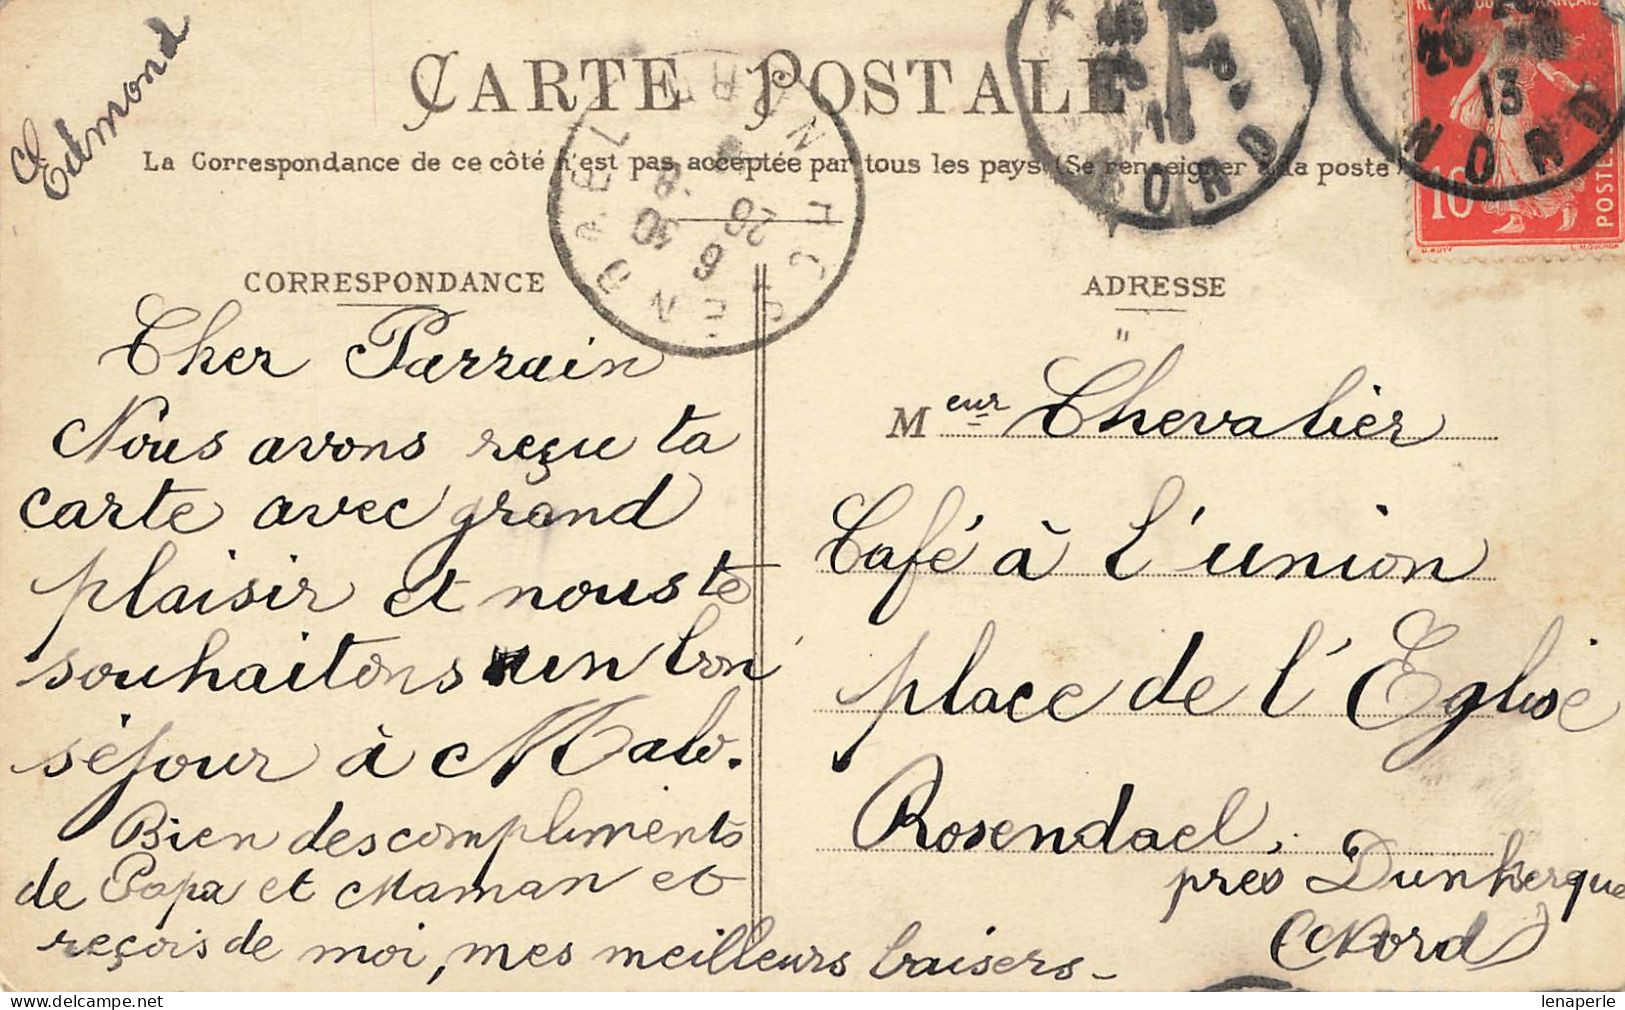 Edmond
CARTE POSTALE
La Correspondance de ce côté n'est pas acceptée par tous les pays (Se renseigner à la poste)
CORRESPONDANCE
Cher Parrain
Nous avons reçu ta
carte avec grand
plaisir et nous te
souhaitons un bon
séjour à Malo.
Bien des compliments
de Papa et Maman et
reçois de moi, mes meilleurs baisers-
ADRESSE
Meur Chevalier
Café à l'union
place de l'Eglise
Rosendael,
près Dunkerque
(Nord)
ROSENDAEL
NORD
13
NORD
13
10
POSTES
lenaperle